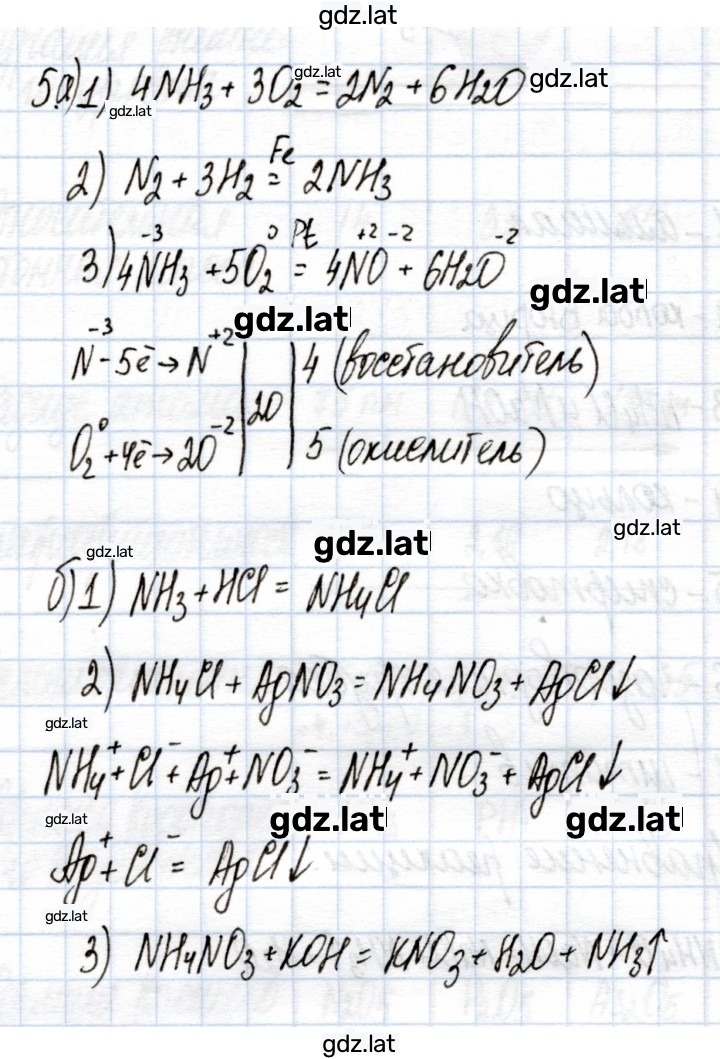 gdz.lat
5.а)1) 4NH₃ + 3O₂ = 2N₂ + 6H₂O
gdz.lat
gdz.lat
gdz.lat
2) N₂ + 3H₂ =(Fe) 2NH₃
3) 4N⁻³H₃ + 5O₂⁰ =(Pt) 4N⁺²O⁻² + 6H₂O⁻²
gdz.lat
gdz.lat
N⁻³ - 5ē → N⁺² | 20 | 4 (восстановитель)
O₂⁰ + 4ē → 2O⁻² | 5 (окислитель)
gdz.lat
gdz.lat
gdz.lat
б) 1) NH₃ + HCl = NH₄Cl
2) NH₄Cl + AgNO₃ = NH₄NO₃ + AgCl↓
gdz.lat
NH₄⁺ + Cl⁻ + Ag⁺ + NO₃⁻ = NH₄⁺ + NO₃⁻ + AgCl↓
gdz.lat
gdz.lat
gdz.lat
Ag⁺ + Cl⁻ = AgCl↓
gdz.lat
3) NH₄NO₃ + KOH = KNO₃ + H₂O + NH₃↑
gdz.lat